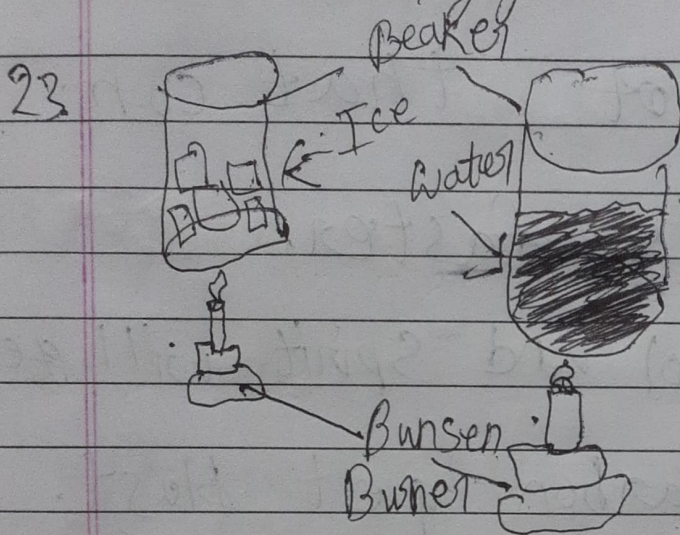 Beaker
23.
Ice
Water
Bunsen
Buner